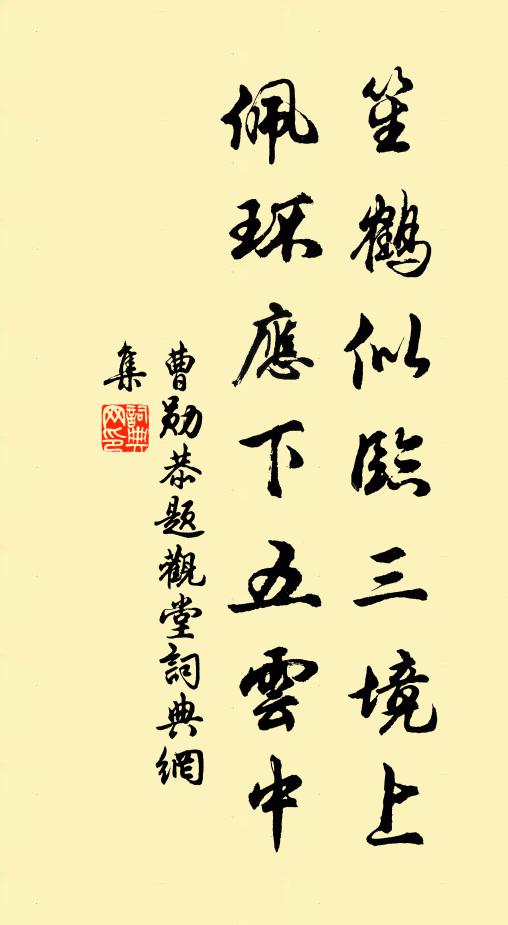 笙鶴似臨三境上
佩環應下五雲中
曹勛恭題觀堂詞典網
集
詞典
网印